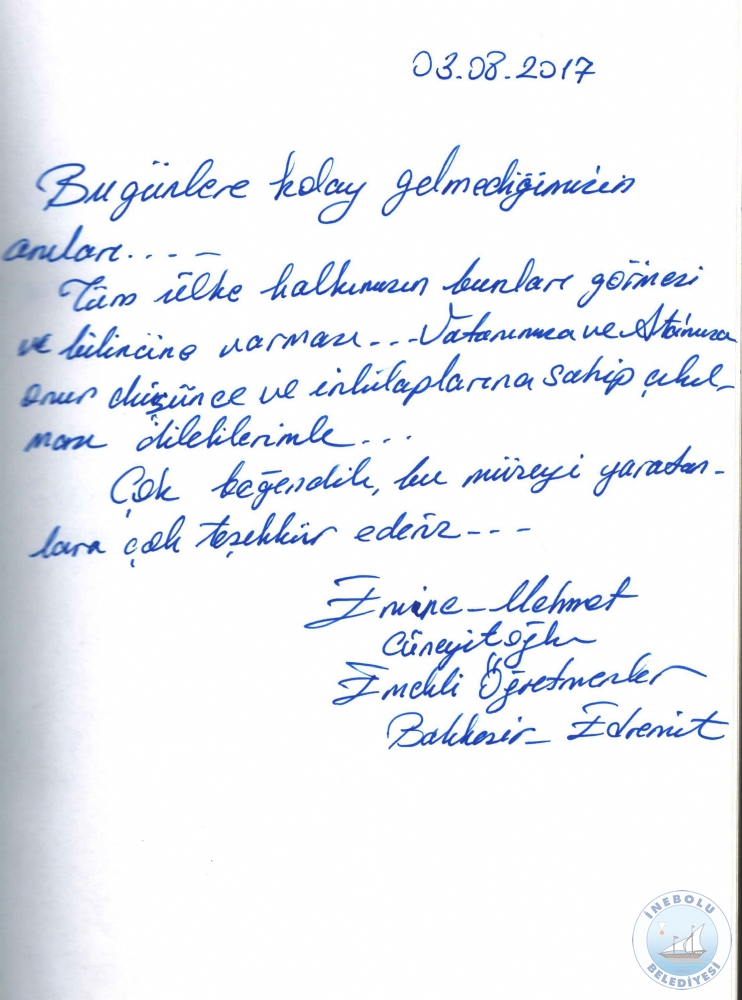 03.08.2017
Bugünlere kolay gelmediğimizin
anıları....-
Tüm ülke halkımızın bunları görmesi
ve bilincine varması...Vatanımıza ve Atamıza
onun düşünce ve inkılaplarına sahip çıkıl-
ması dileklerimle...
Çok beğendik, bu müzeyi yaratan-
lara çok teşekkür ederiz---
Emine-Mehmet
Cüneyitoğlu
Emekli Öğretmenler
Balıkesir-Edremit
İNEBOLU
BELEDİYESİ